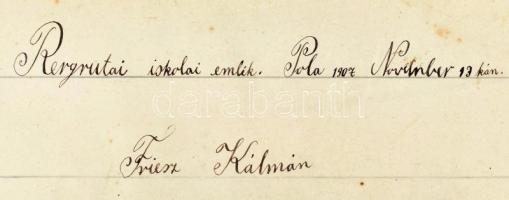 Rergrutai iskolai emlék. Pola 1907 November 13 kán.
darabanth
Friesz Kálmán